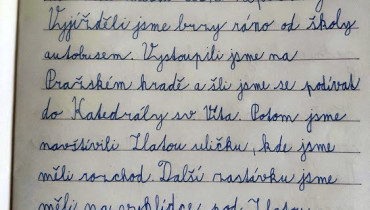 Vyjížděli jsme brzy ráno od školy
autobusem. Vystoupili jsme na
Pražském hradě a šli jsme se podívat
do Katedrály sv Víta. Potom jsme
navštívili Zlatou uličku, kde jsme
měli rozchod. Další zastávku jsme
měli na vyhlídce pod Zlatou